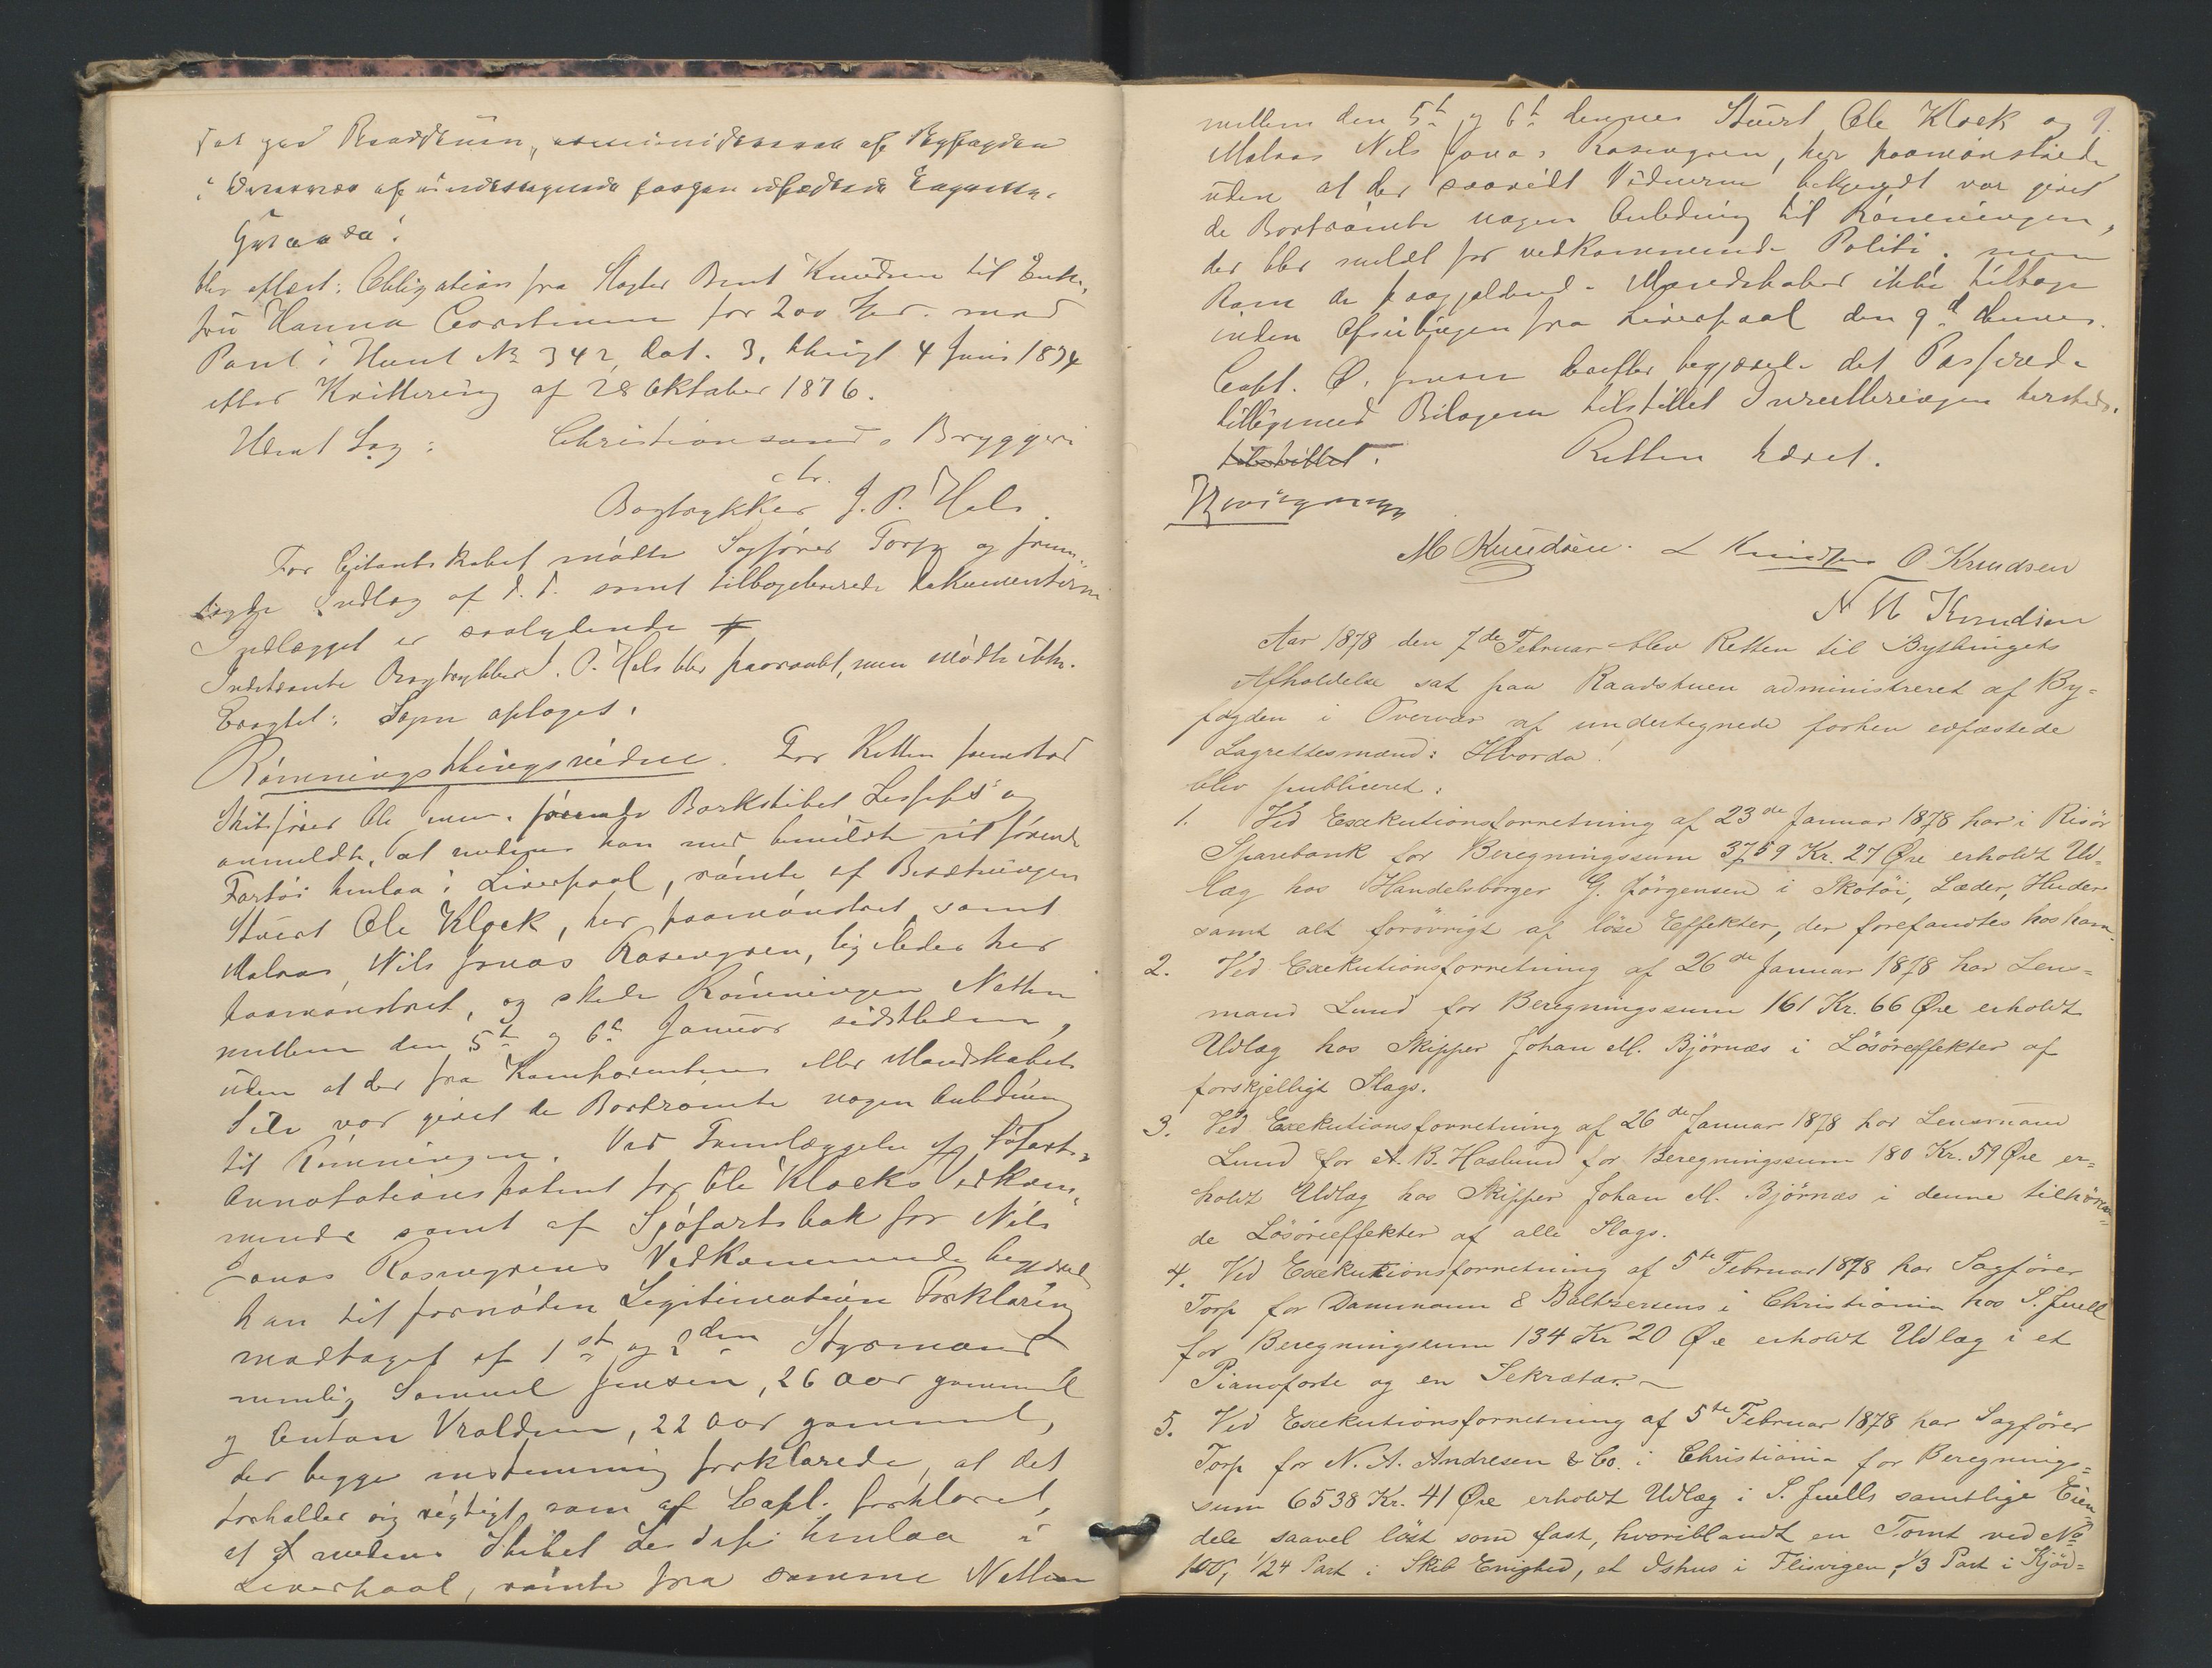 sat paa Raadstuen, administreret af Byfogden
i Overvær af undertegnede forhen edfæstede Lagrettes-
Hvorda!
blev aflæst: Obligation fra Slagter Bent Knudsen til Enke-
fru Hanna Carstensen for 200 Spd. med
Pant i Huset № 342, dat. 3, thingl 4 Juni 1874
efter Kvittering af 28 Oktober 1876.
Udsat Sag: Christianssands Bryggeri
ctr.
Bogtrykker J. P. Hals.
For Citantskabet mødte Sagfører Torp og frem-
lagde Indlæg af d. d. samt tilbageleverede Dokumenterne
Indlægget er saalydende
Indstevnte Bogtrykker J. P. Hals blev paaraabt, men mødte ikke.
Eragtet: Sagen optages.
Rømningsthingsvidne. For Retten fremstod
Skibsfører Ole Jensen, førende Barkskibet Lesseps og
anmeldte, at medens han med bemeldte sit førende
Fartøi henlaa i Liverpool, rømte af Besætningen
Stuert Ole Klock, her paamønstret, samt
Matros Nils Jonas Rosengren, ligeledes her
paamønstret, og skede Rømningen Natten
mellem den 5te og 6te Januar sidstleden,
uden at der fra Komporenten eller Mandskabets
Side var givet de Bortrømte nogen Anledning
til Rømningen. Ved Fremlæggelse af Søfarts-
Annotationspatent for Ole Klocks Vedkom-
mende samt af Sjøfartsbok for Nils
Jonas Rosengrens Vedkommende begjæred
han til fornøden Legitimation Forklaring
modtaget af 1ste og 2den Styrmand
nemlig Samuel Jensen, 26 Aar gammel
og Anton Vraldsen, 22 Aar gammel,
der begge enstemmig forklarede, at det
forholder sig rigtigt som af Capt. forklaret,
at medens Skibet Lesseps henlaa i
Liverpool, rømte fra samme Natten
9.
mellem den 5te og 6te dennes Stuert Ole Klock og
Matros Nils Jonas Rosengren, her paamønstrede
uden at der saavidt Vidnerne bekjendt var givet
de Bortrømte nogen Anledning til Rømningen,
der blev meldt for vedkommende Politi, men
kom de paagjældende Mandskaber ikke tilbage
inden Afseilingen fra Liverpool den 9de dennes.
Capt. O. Jensen derefter begjærede det Passerede
tilligemed Bilagene tilstillet Inrulleringen hersteds.
tilstillet. Retten hævet.
M Knudsen. L Knudsen O Knudsen
N M Knudsen
Aar 1878 den 7de Februar blev Retten til Bythingets
Afholdelse sat paa Raadstuen administreret af By-
fogden i Overvær af undertegnede forhen edfæstede
Lagrettesmænd: Hvorda!
blev publiceret:
1. Ved Exekutionsforretning af 23de Januar 1878 har i Risör
Sparebank for Beregningssum 3759 Kr. 27 Øre erholdt Ud-
læg hos Handelsborger G. Jörgensen i Skotöi, Læder, Huder
samt alt forövrigt af löse Effekter, der forefandtes hos ham.
2. Ved Exekutionsforretning af 26de Januar 1878 har Lens-
mand Lund for Beregningssum 161 Kr. 66 Øre erholdt
Udlæg hos Skipper Johan M. Björnæs i Lösöreffekter af
forskjelligt Slags.
3. Ved Exekutionsforretning af 26de Januar 1878 har Lensmand
Lund for A. B. Haslund for Beregningssum 180 Kr. 59 Øre er-
holdt Udlæg hos Skipper Johan M. Björnæs i denne tilhören-
de Lösöreeffekter af alle Slags.
4. Ved Exekutionsforretning af 5te Februar 1878 har Sagförer
Torp for Dammann & Baltzersens i Christiania hos S. Juell
for Beregningssum 134 Kr 20 Øre erholdt Udlæg i et
Pianoforte og en Sekretær.
5. Ved Exekutionsforretning af 5te Februar 1878 har Sagförer
Torp for N. A. Andresen & Co. i Christiania for Beregnings-
sum 6538 Kr. 41 Øre erholdt Udlæg i S. Juells samtlige Eien-
dele saavel löst som fast, hvoriblandt en Tomt ved No
100, 1/24 Part i Skib Enighed, et Ishus i Flisvigen, 1/3 Part i Kjöd-